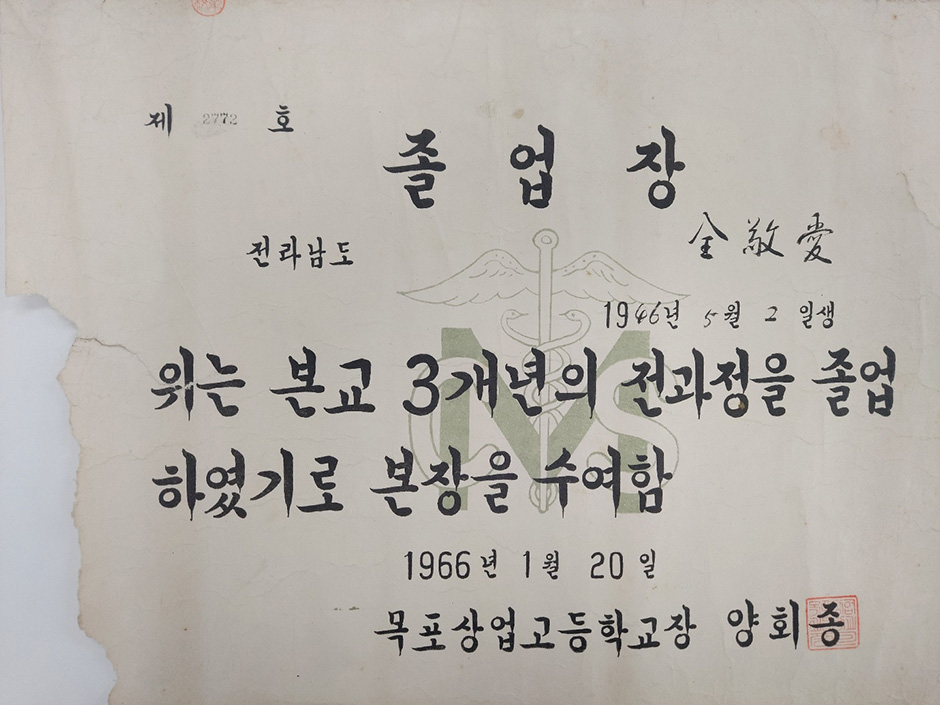 제 2772 호
졸업장
전라남도
全敬愛
1946년 5월 2일생
위는 본교 3개년의 전과정을 졸업
하였기로 본장을 수여함
1966년 1월 20일
목포상업고등학교장 양회종